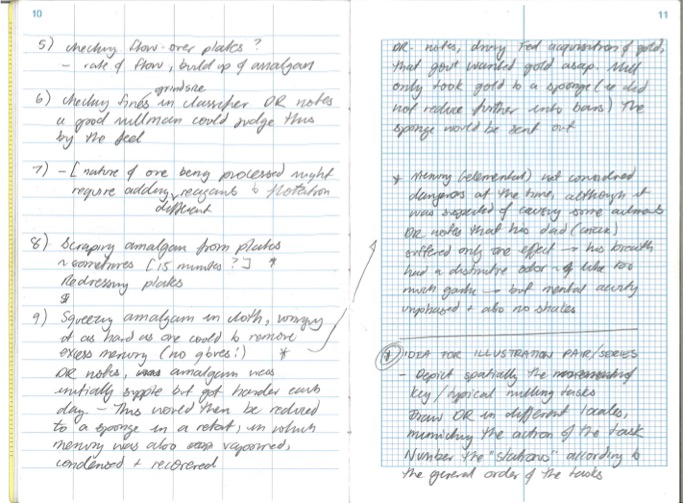 10
5) checking flow over plates?
- rate of flow, build up of amalgam
grindsize
6) checking fines in classifier DR notes
a good millman could judge this
by the feel
7) - [nature of ore being processed might
require adding reagents to flotation
different
8) Scraping amalgam from plates
~ sometimes [15 minutes?] *
Redressing plates
9) Squeezing amalgam in cloth, wringing
it as hard as one could to remove
excess mercury (no gloves!) *
DR notes, amalgam was
initially supple but got harder each
day. - This would then be reduced
to a sponge in a retort, in which
mercury was also vapourized,
condensed + recovered
11
DR notes, during Fed acquisition of gold,
that govt wanted gold asap. Mill
only took gold to a sponge (ie did
not reduce further into bars) The
sponge would be sent out
* Mercury (elemental) not considered
dangerous at the time, although it
was suspected of causing some ailments
DR notes that his dad
suffered only one effect → his breath
had a distinctive odor ~ of like too
much garlic → but mental acuity
unphased + also no shakes
IDEA FOR ILLUSTRATION PAIR/SERIES
- Depict spatially the of
key/typical milling tasks
Draw DR in different locales,
mimicking the action of the task
Number the "stations" according to
the general order of the tasks